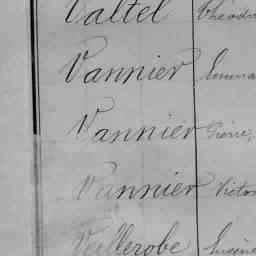 Valtel Théodo
Vannier Emma
Vannier Pierre,
Vannier Victor
Veillerobe Eugène